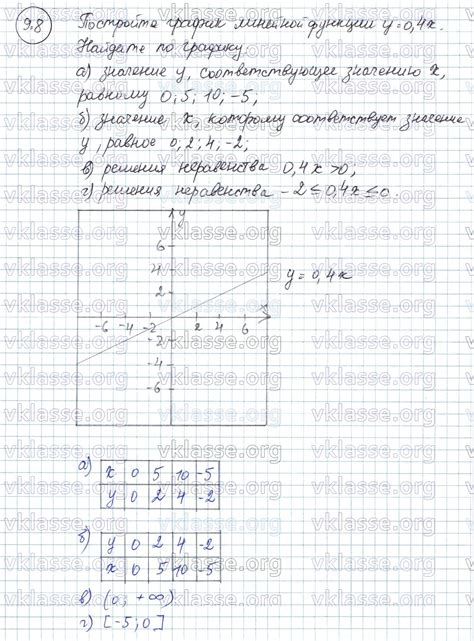 9.8 Постройте график линейной функции y=0,4x.
Найдите по графику:
а) значение y, соответствующее значению x,
равному 0; 5; 10; -5;
б) значение x, которому соответствует значение
y, равное 0; 2; 4; -2;
в) решения неравенства 0,4x >0;
г) решения неравенства -2 ≤ 0,4x ≤ 0.
y
6
4
y = 0,4x
2
x
-6 -4 -2 2 4 6
-2
-4
-6
а) x 0 5 10 -5
y 0 2 4 -2
б) y 0 2 4 -2
x 0 5 10 -5
в) (0; +∞)
г) [-5; 0]
vklasse.org